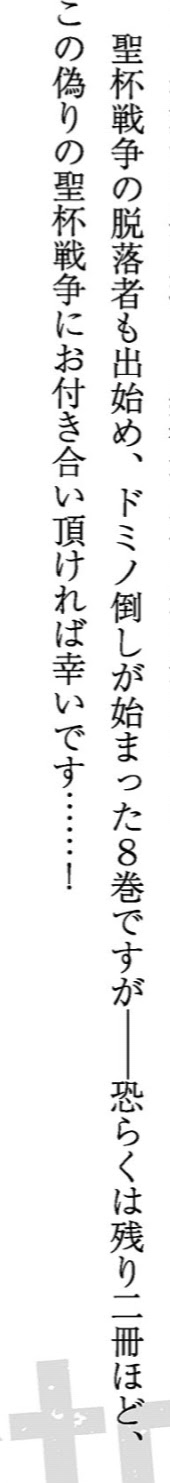 聖杯戦争の脱落者も出始め、ドミノ倒しが始まった８巻ですが――恐らくは残り二冊ほど、
この偽りの聖杯戦争にお付き合い頂ければ幸いです……！